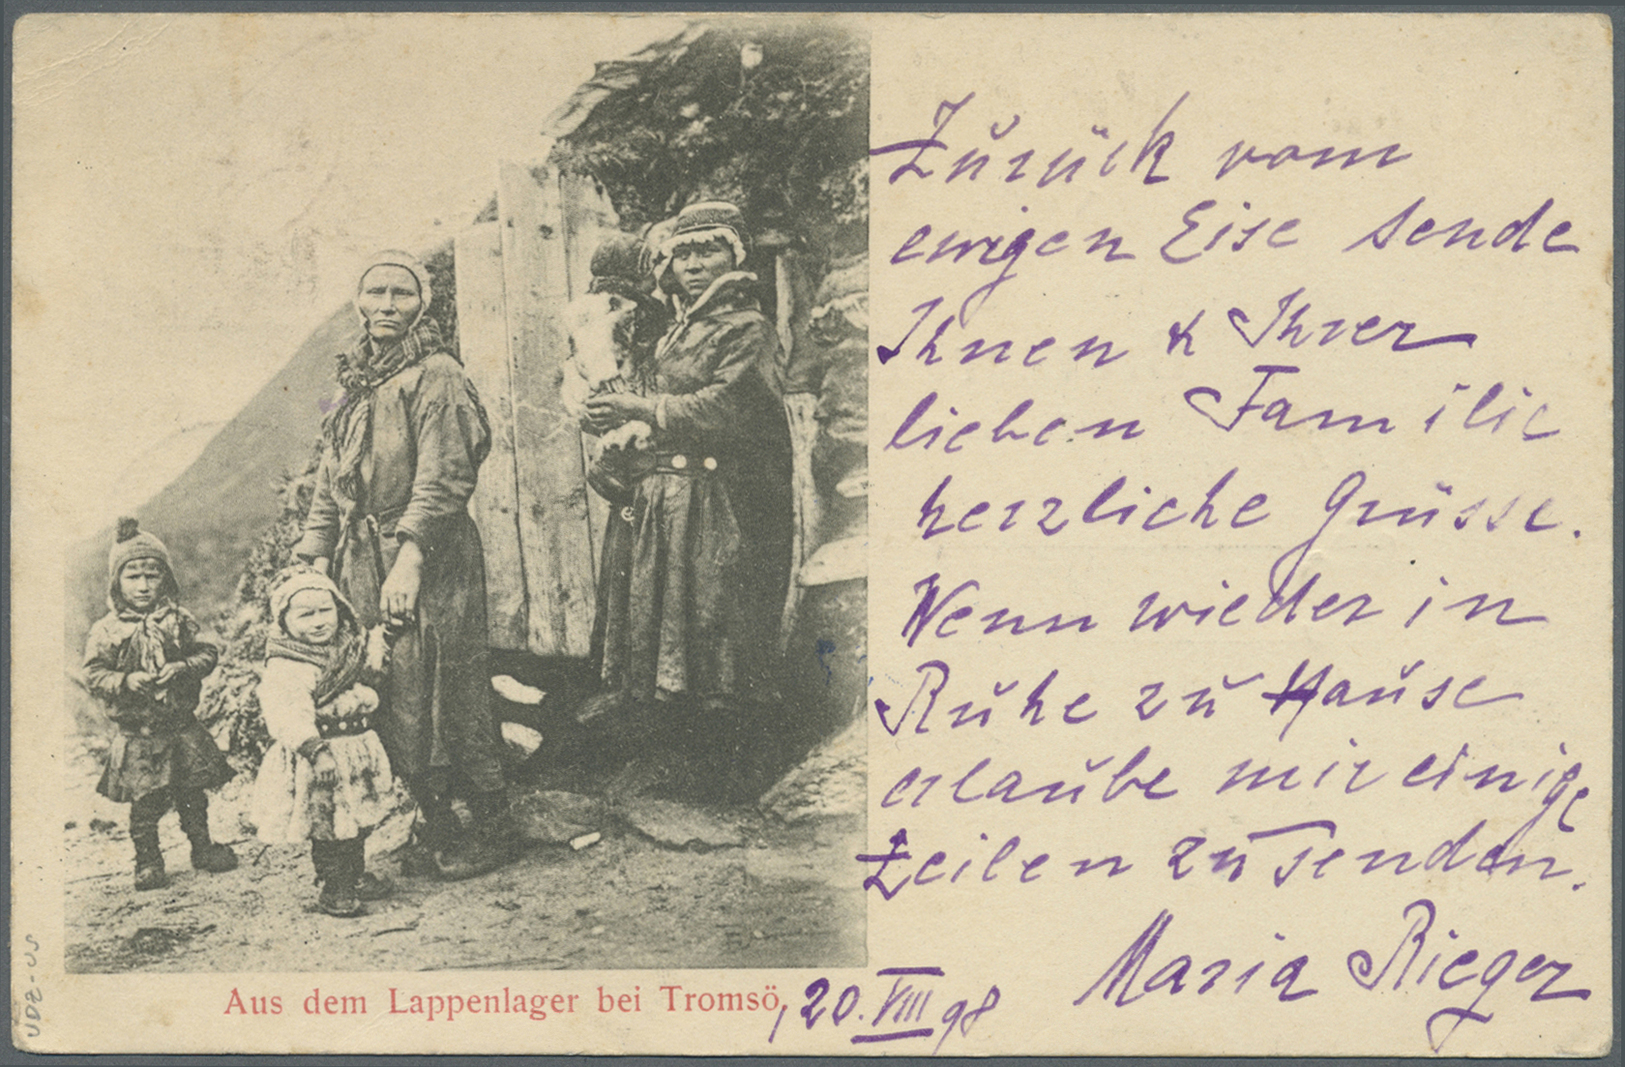 Zurück vom
ewigen Eise sende
Ihnen & Ihrer
lieben Familie
herzliche Grüsse.
Wenn wieder in
Ruhe zu Hause
erlaube mir einige
Zeilen zu senden.
Maria Rieger
Aus dem Lappenlager bei Tromsö, 20. VIII 98